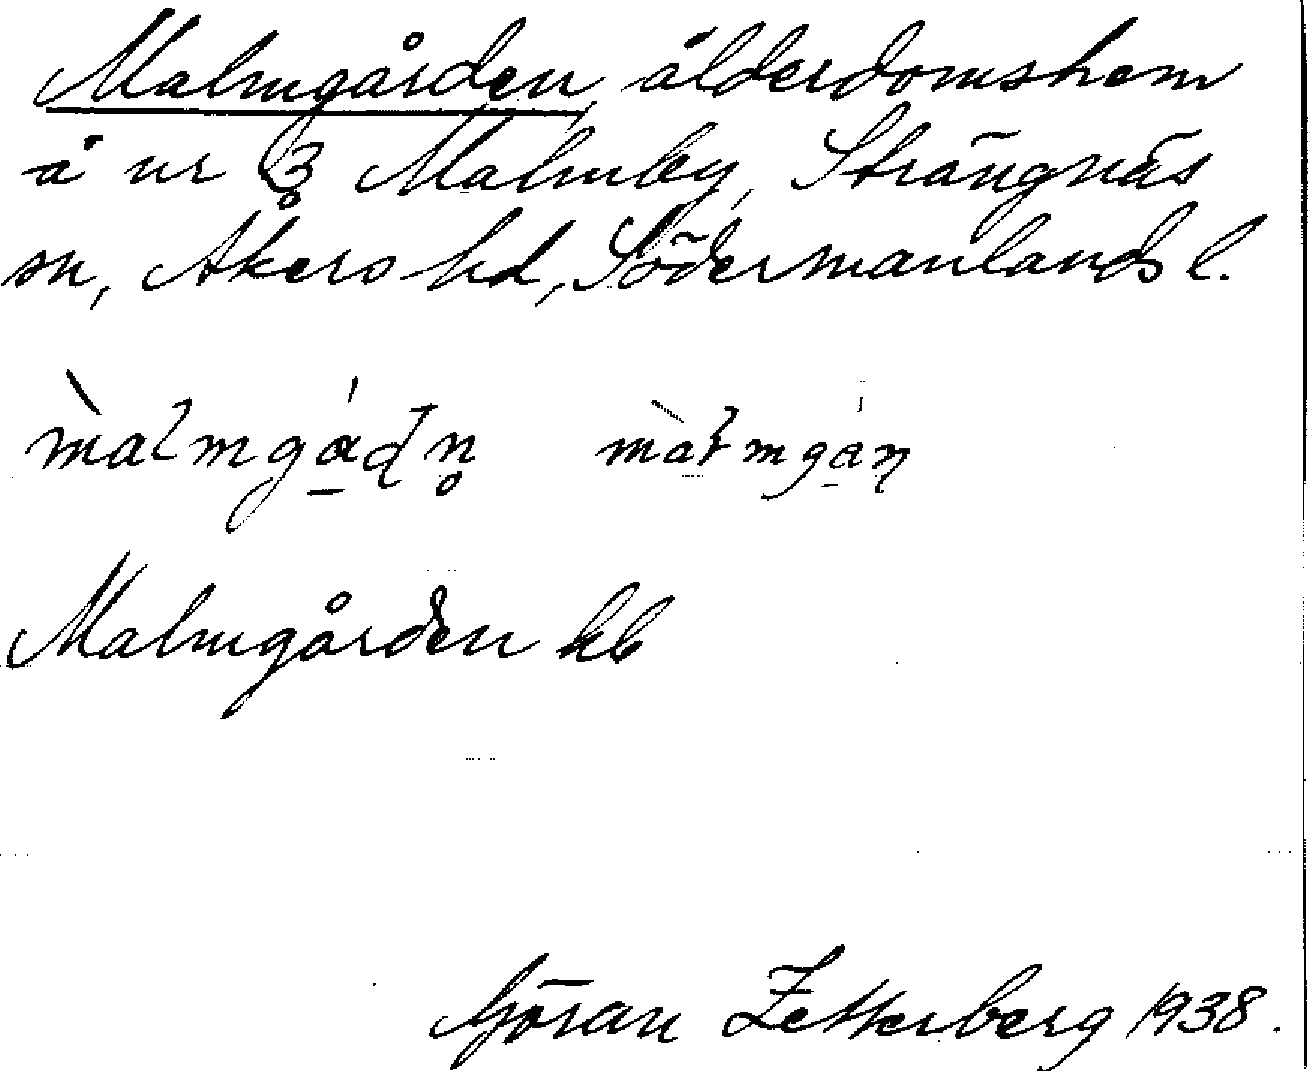 Malmgården, ålderdomshem
å nr 3 Malmby, Strängnäs
sn, Åkers hd, Södermanlands l.
Malmgården kb
Göran Zetterberg 1938.